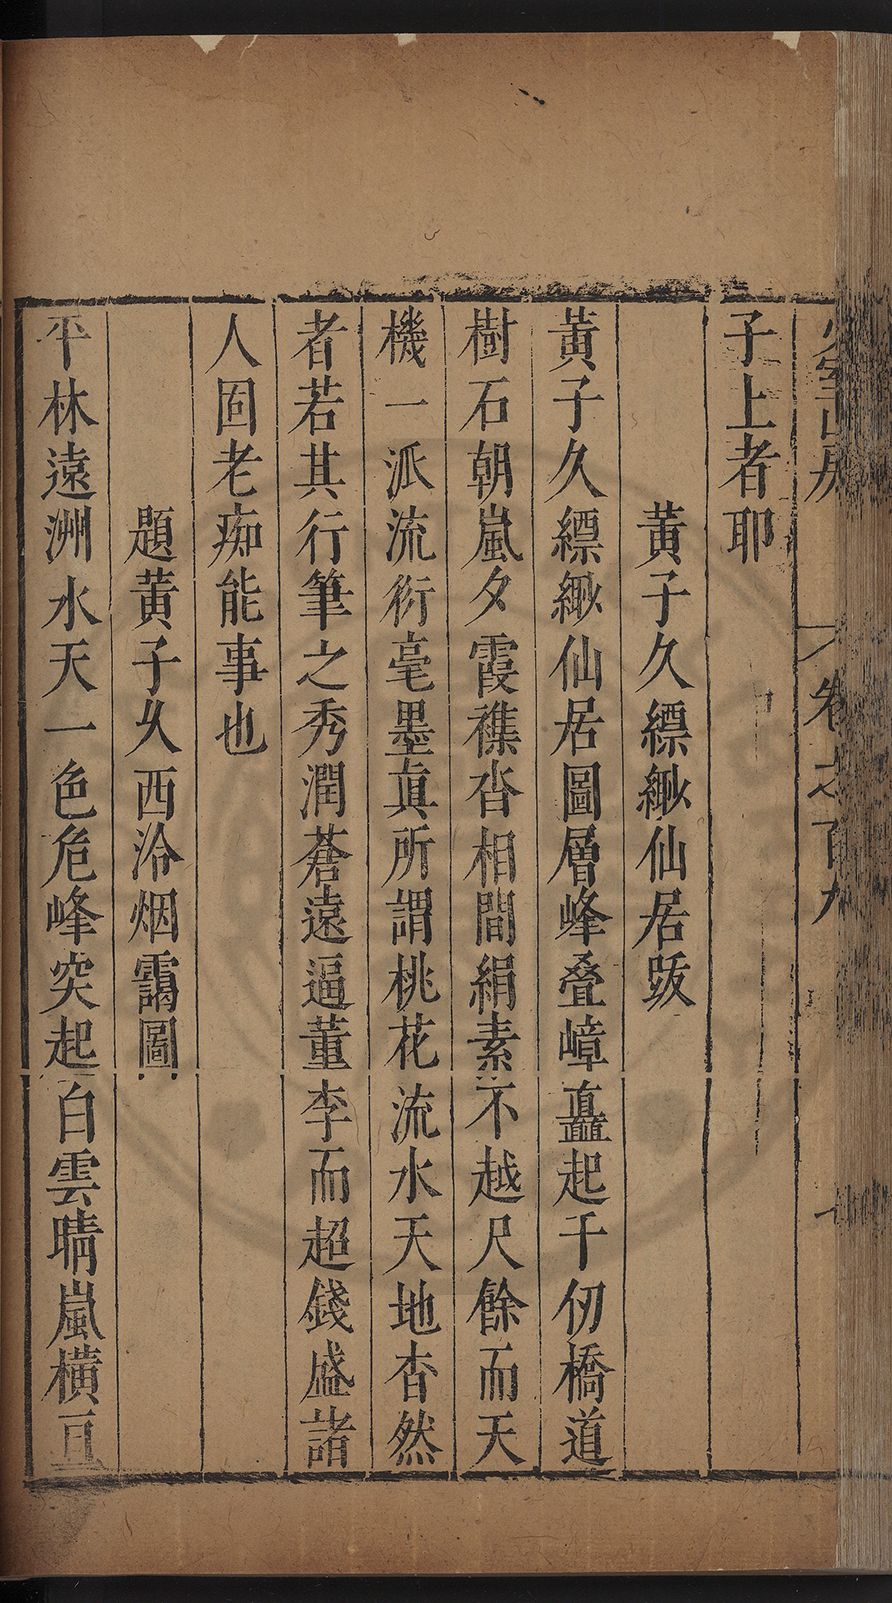 少室山房　卷之百九
子上者耶
黃子久縹緲仙居跋
黃子久縹緲仙居圖層峰叠嶂矗起千仞橋道
樹石朝嵐夕霞襍沓相間絹素不越尺餘而天
機一派流衍毫墨眞所謂桃花流水天地杳然
者若其行筆之秀潤蒼遠逼董李而超錢盛諸
人固老痴能事也
題黃子久西泠烟靄圖
平林遠洲水天一色危峰突起白雲晴嵐橫亘